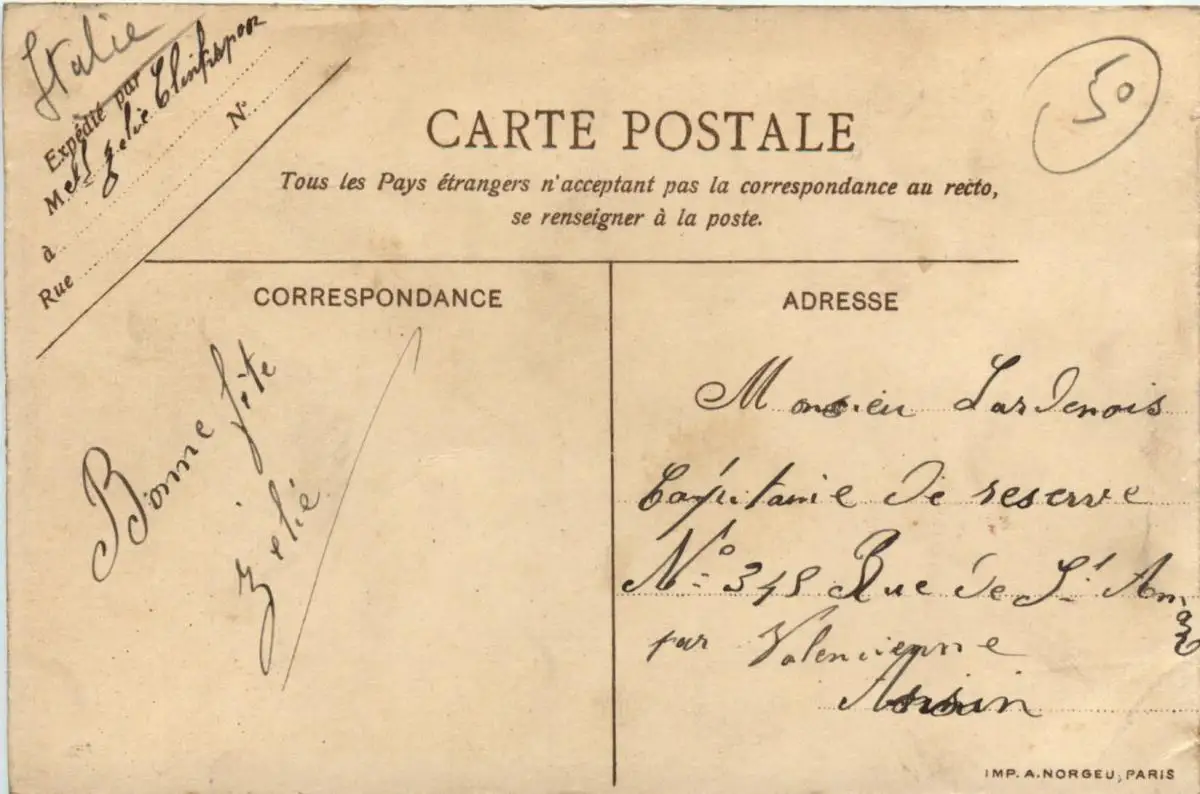 Italie
Expédié par
M elle Zelie
à N°
Rue
50
CARTE POSTALE
Tous les Pays étrangers n'acceptant pas la correspondance au recto,
se renseigner à la poste.
CORRESPONDANCE
Bonne fête
Zelié
ADRESSE
Monsieu Lardenois
Capitaine de reserve
N° 348 Rue de St Am
par Valencienne
Anzin
IMP. A. NORGEU, PARIS